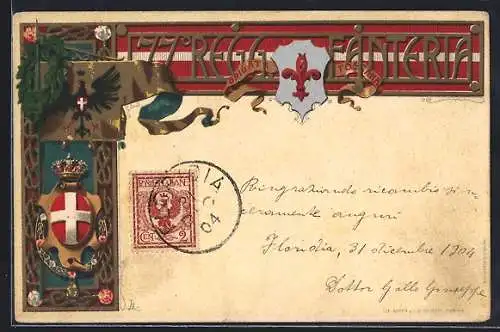 77º REGG. FANTERIA
BRIGATA TOSCANA
FRANCOBOLLO
CENT. 2
DIA
04
Ringraziando ricambio sin-
ceramente auguri
Floridia, 31 dicembre 1904
Dottor Gallo Giuseppe